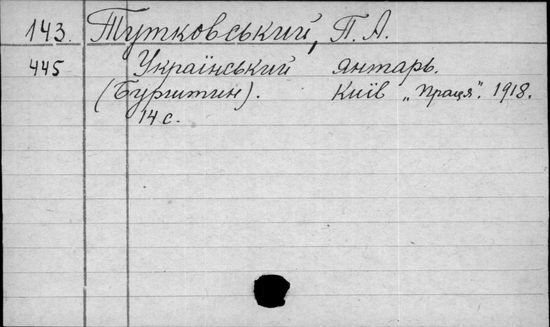 143. Тутковський, П. А.
445 Український янтарь.
(Бурштин). Київ „Праця". 1918.
14 с.